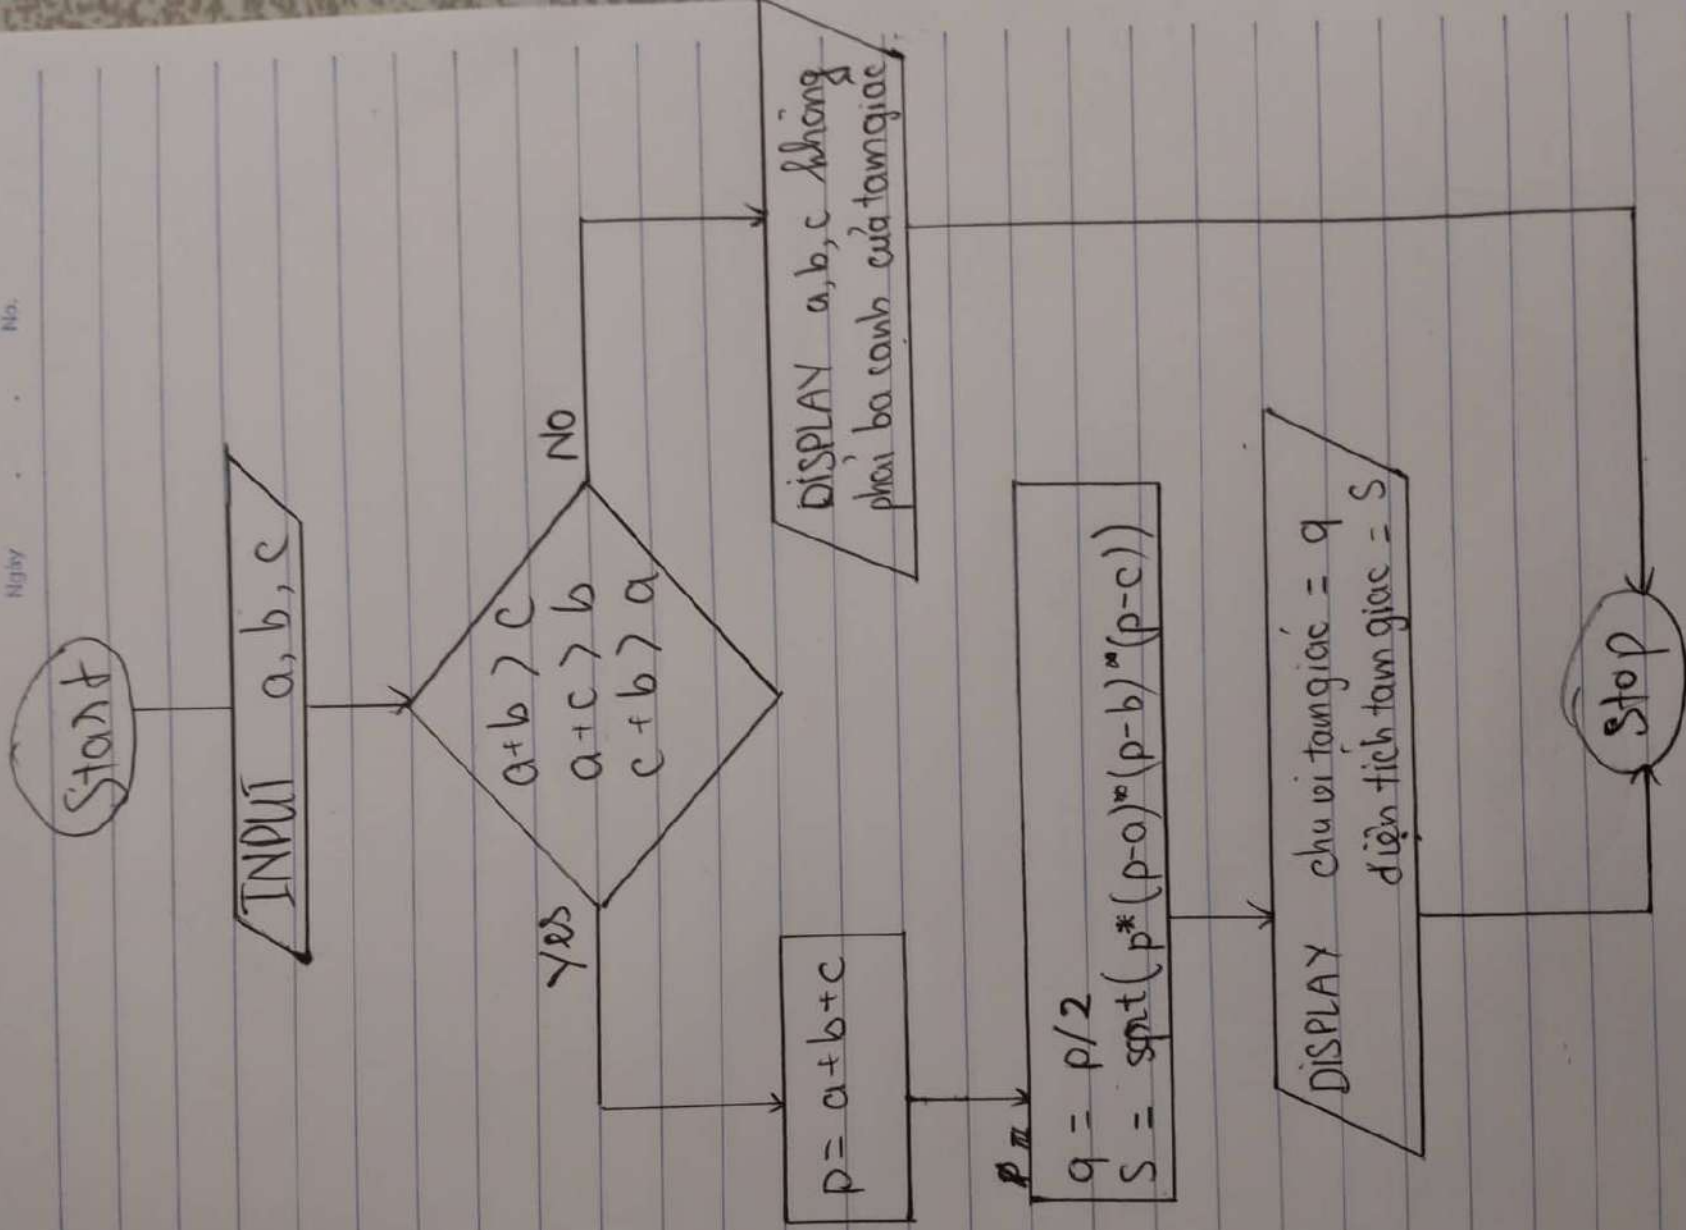 Ngày . . No.
Start
INPUT a, b, c
a+b > c
a+c > b
c+b > a
Yes
No
p = a+b+c
DISPLAY a, b, c không
phải ba cạnh của tam giác
q = p/2
S = sqrt(p*(p-a)*(p-b)*(p-c))
DISPLAY chu vi tam giác = q
diện tích tam giác = S
Stop